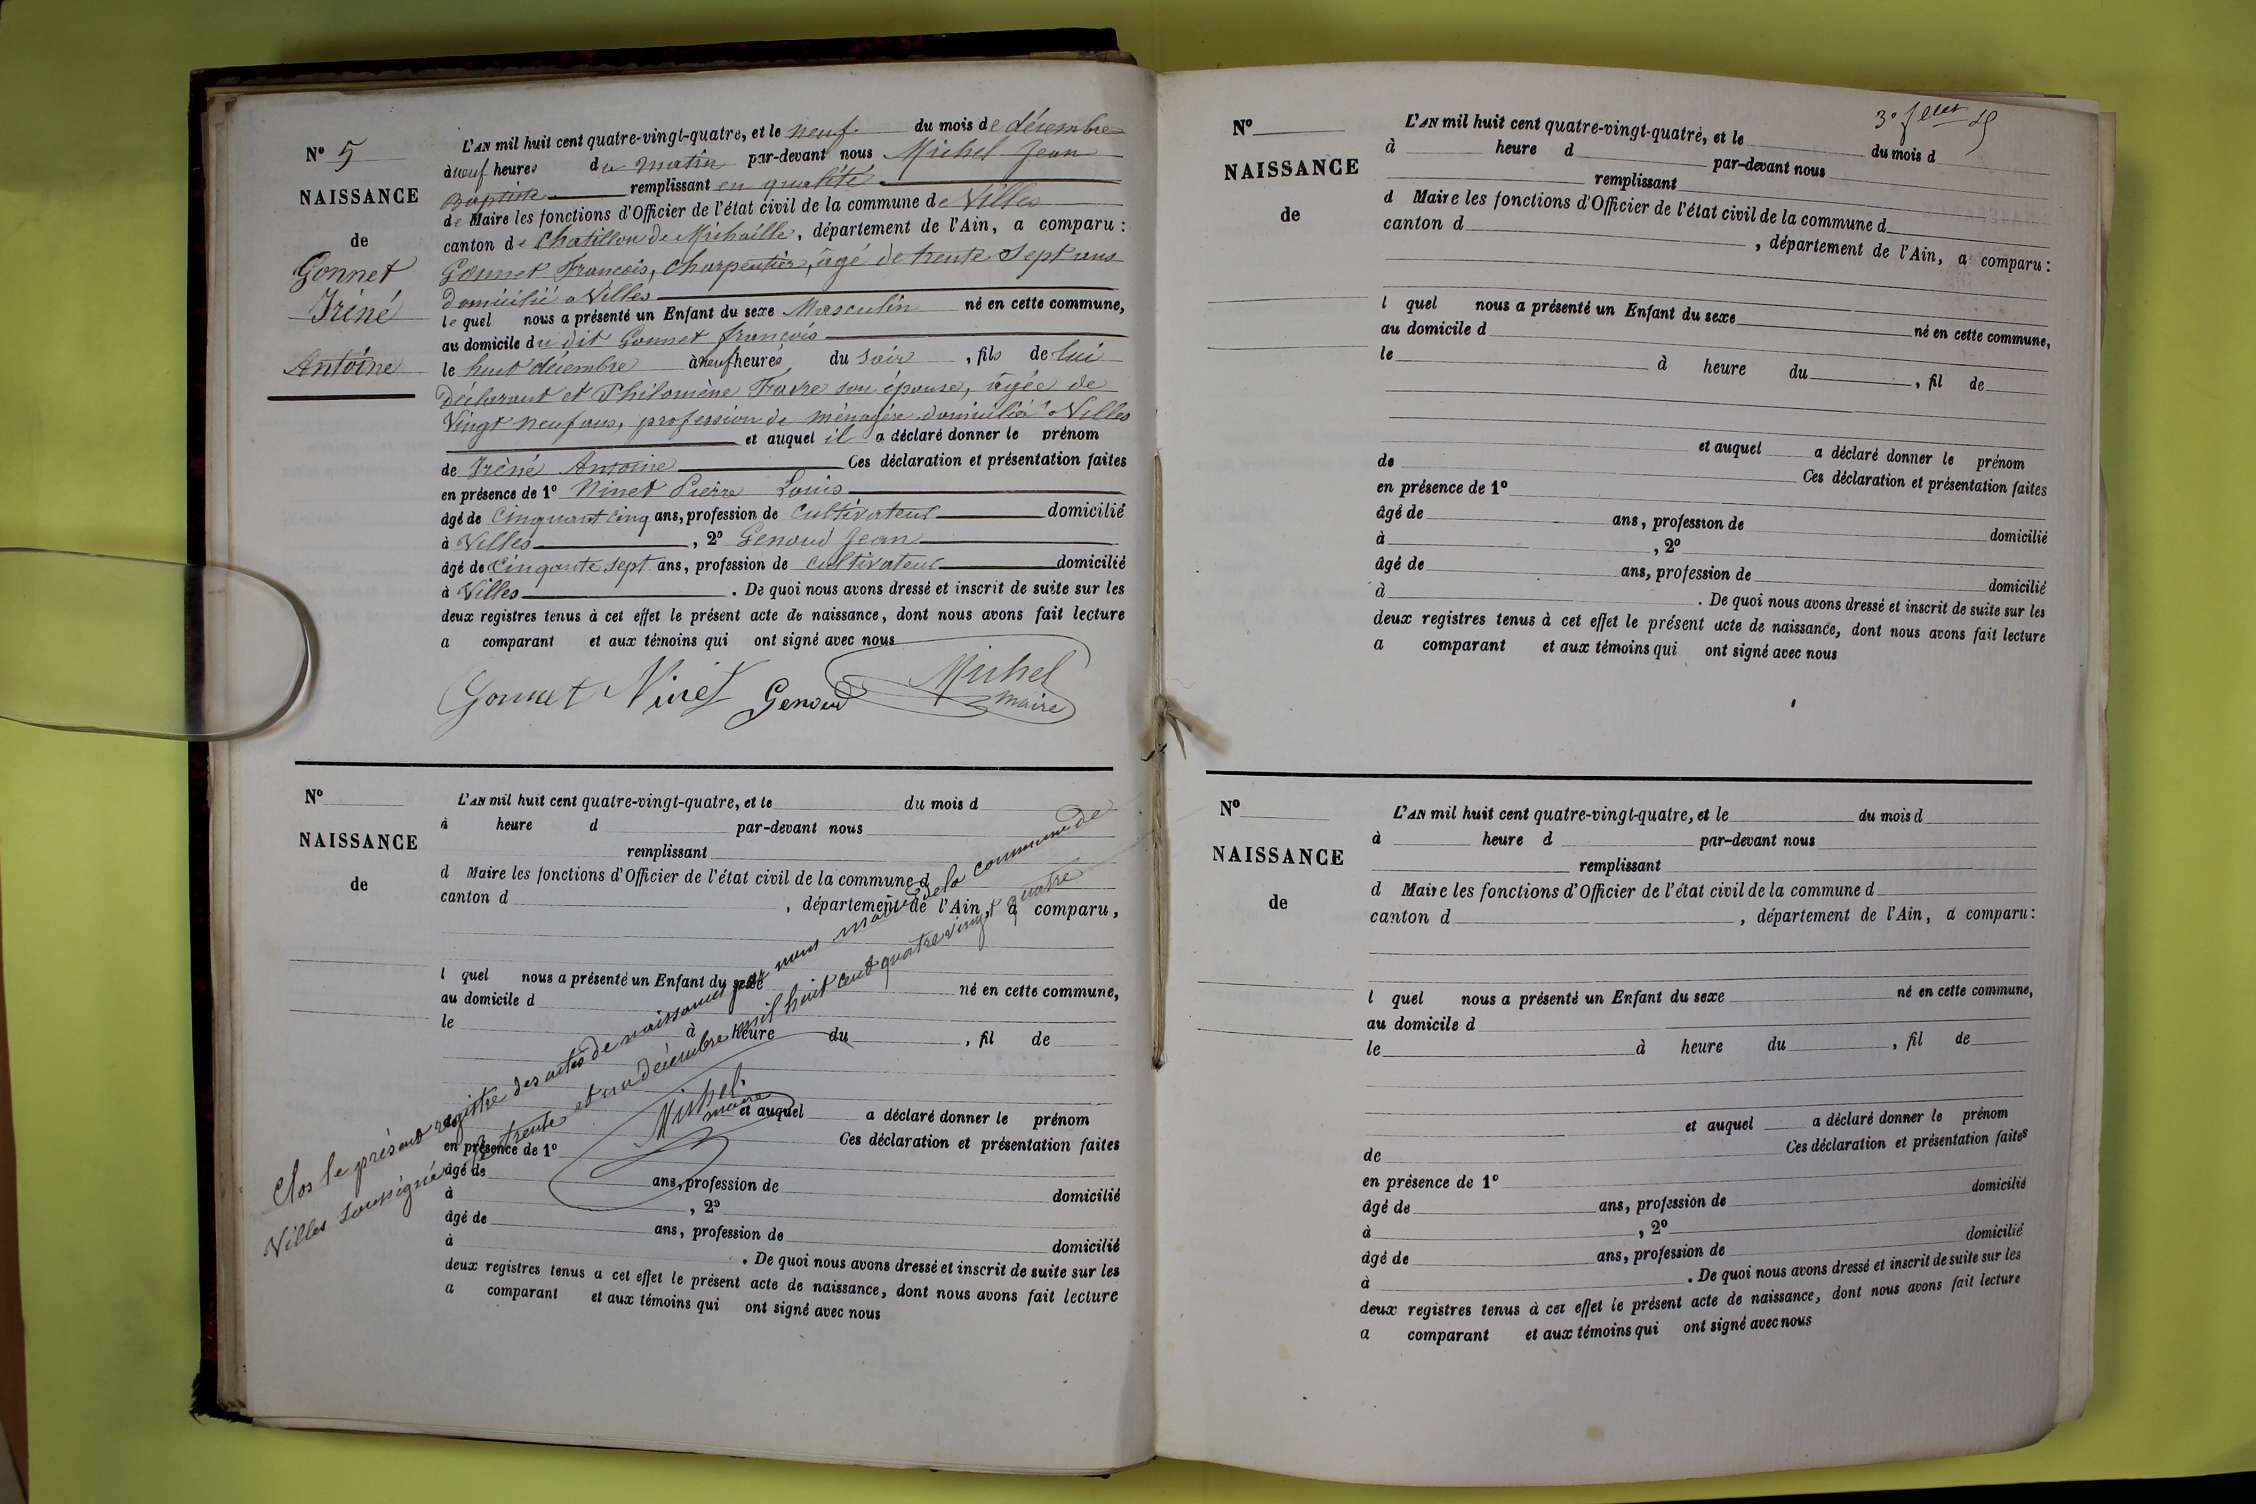 N° 5
NAISSANCE
de
Gonnet
Iréné
Antoine
L'AN mil huit cent quatre-vingt-quatre, et le neuf du mois de décembre
à neuf heures du matin par-devant nous Michel Jean
Baptiste remplissant en qualité
de Maire les fonctions d'Officier de l'état civil de la commune de Villes
canton de Chatillon de Michaille, département de l'Ain, a comparu :
Gonnet François, charpentier, âgé de trente sept ans
domicilié a Villes
le quel nous a présenté un Enfant du sexe Masculin né en cette commune,
au domicile du dit Gonnet françois
le huit décembre à neuf heures du soir, fils de lui
Déclarant et Philomène Favre son épouse, âgée de
Vingt neuf ans, profession de ménagère domiciliée à Villes
et auquel il a déclaré donner le prénom
de Iréné Antoine Ces déclaration et présentation faites
en présence de 1° Ninet Pierre Louis
âgé de Cinquant cinq ans, profession de cultivateur domicilié
à Villes, 2° Genoud Jean
âgé de Cinqante sept ans, profession de cultivateur domicilié
à Villes. De quoi nous avons dressé et inscrit de suite sur les
deux registres tenus à cet effet le présent acte de naissance, dont nous avons fait lecture
a comparant et aux témoins qui ont signé avec nous
Gonnet Ninet Genoud Michel
maire
N°
NAISSANCE
de
L'AN mil huit cent quatre-vingt-quatre, et le du mois d
à heure d par-devant nous
remplissant
d Maire les fonctions d'Officier de l'état civil de la commune d
canton d , département de l'Ain, a comparu,
l quel nous a présenté un Enfant du sexe né en cette commune,
au domicile d
le à heure du , fil de
et auquel a déclaré donner le prénom
Ces déclaration et présentation faites
en présence de 1°
âgé de ans, profession de domicilié
à , 2°
âgé de ans, profession de domicilié
à . De quoi nous avons dressé et inscrit de suite sur les
deux registres tenus a cet effet le présent acte de naissance, dont nous avons fait lecture
a comparant et aux témoins qui ont signé avec nous
Clos le présent registre des actes de naissances par nous maire de la commune de
Villes soussigné le trente et un décembre mil huit cent quatre vingt quatre
Michel
maire
3e fllet
N°
NAISSANCE
de
L'AN mil huit cent quatre-vingt-quatre, et le du mois d
à heure d par-devant nous
remplissant
d Maire les fonctions d'Officier de l'état civil de la commune d
canton d , département de l'Ain, a comparu :
l quel nous a présenté un Enfant du sexe né en cette commune,
au domicile d
le à heure du , fil de
et auquel a déclaré donner le prénom
de Ces déclaration et présentation faites
en présence de 1°
âgé de ans, profession de domicilié
à , 2°
âgé de ans, profession de domicilié
à . De quoi nous avons dressé et inscrit de suite sur les
deux registres tenus à cet effet le présent acte de naissance, dont nous avons fait lecture
a comparant et aux témoins qui ont signé avec nous
N°
NAISSANCE
de
L'AN mil huit cent quatre-vingt-quatre, et le du mois d
à heure d par-devant nous
remplissant
d Maire les fonctions d'Officier de l'état civil de la commune d
canton d , département de l'Ain, a comparu :
l quel nous a présenté un Enfant du sexe né en cette commune,
au domicile d
le à heure du , fil de
et auquel a déclaré donner le prénom
de Ces déclaration et présentation faites
en présence de 1°
âgé de ans, profession de domicilié
à , 2°
âgé de ans, profession de domicilié
à . De quoi nous avons dressé et inscrit de suite sur les
deux registres tenus à cet effet le présent acte de naissance, dont nous avons fait lecture
a comparant et aux témoins qui ont signé avec nous